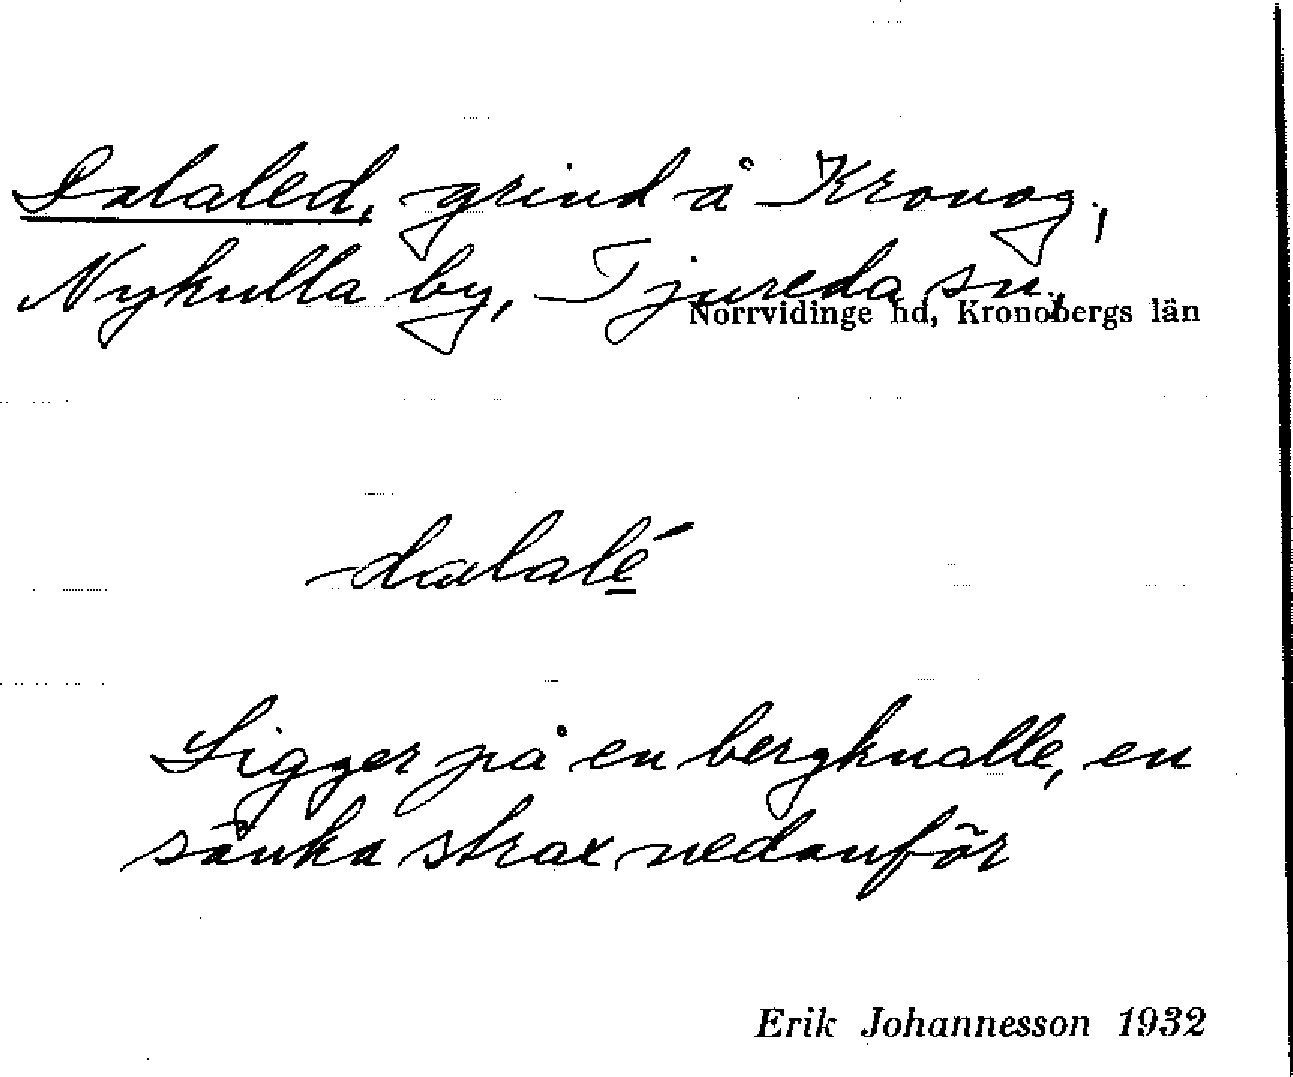 Dalaled, grind å Kronog.,
Nykulla by, Tjureda sn,
Norrvidinge hd, Kronobergs län
dalalé
Ligger på en bergknalle, en
sänka strax nedanför
Erik Johannesson 1932